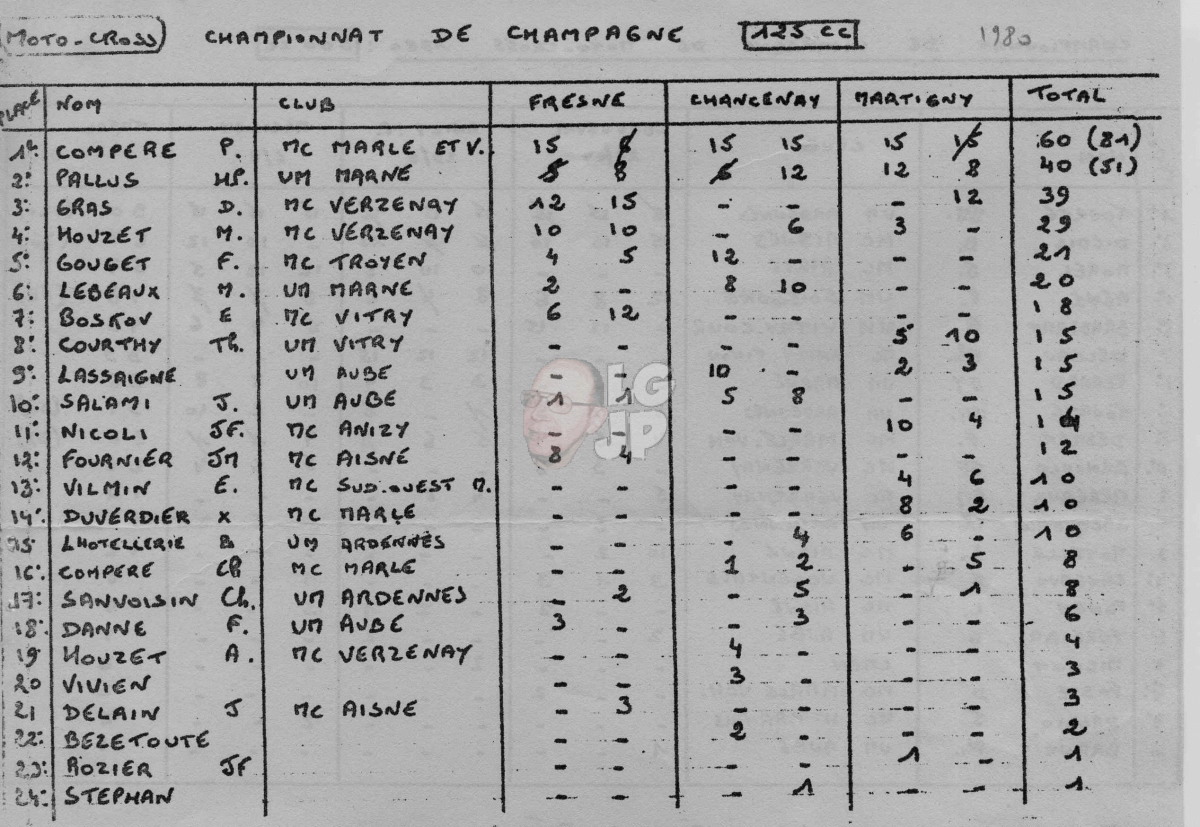 MOTO-CROSS CHAMPIONNAT DE CHAMPAGNE 125 CC 1980
PLACE NOM CLUB FRESNE CHANCENAY MARTIGNY TOTAL
1e: COMPERE P. MC MARLE ET V. 15 6 15 15 15 15 60 (81)
2: PALLUS MP. UM MARNE 5 8 6 12 12 8 40 (51)
3: GRAS D. MC VERZENAY 12 15 - - - 12 39
4: HOUZET M. MC VERZENAY 10 10 - 6 3 - 29
5: GOUGET F. MC TROYEN 4 5 12 - - - 21
6: LEBEAUX M. UM MARNE 2 - 8 10 - - 20
7: BOSKOV E MC VITRY 6 12 - - - - 18
8: COURTHY Th. UM VITRY - - - - 5 10 15
9: LASSAIGNE UM AUBE - - 10 - 2 3 15
10: SALAMI J. UM AUBE 1 1 5 8 - - 15
11: NICOLI JF. MC ANIZY - - - - 10 4 14
12: FOURNIER JM MC AISNE 8 4 - - - - 12
13: VILMIN E. MC SUD.OUEST M. - - - - 4 6 10
14: DUVERDIER X MC MARLE - - - - 8 2 10
15 LHOTELLERIE B UM ARDENNES - - - 4 6 - 10
16: COMPERE Ch MC MARLE - - 1 2 - 5 8
17: SANVOISIN Ch. UM ARDENNES - 2 - 5 - 1 8
18: DANNE F. UM AUBE 3 - - 3 - - 6
19 HOUZET A. MC VERZENAY - - 4 - - - 4
20 VIVIEN - - 3 - - - 3
21 DELAIN J MC AISNE - 3 - - - - 3
22: BEZETOUTE - - 2 - - - 2
23: ROZIER JF - - - - 1 - 1
24: STEPHAN - - - 1 - - 1
LG
JP